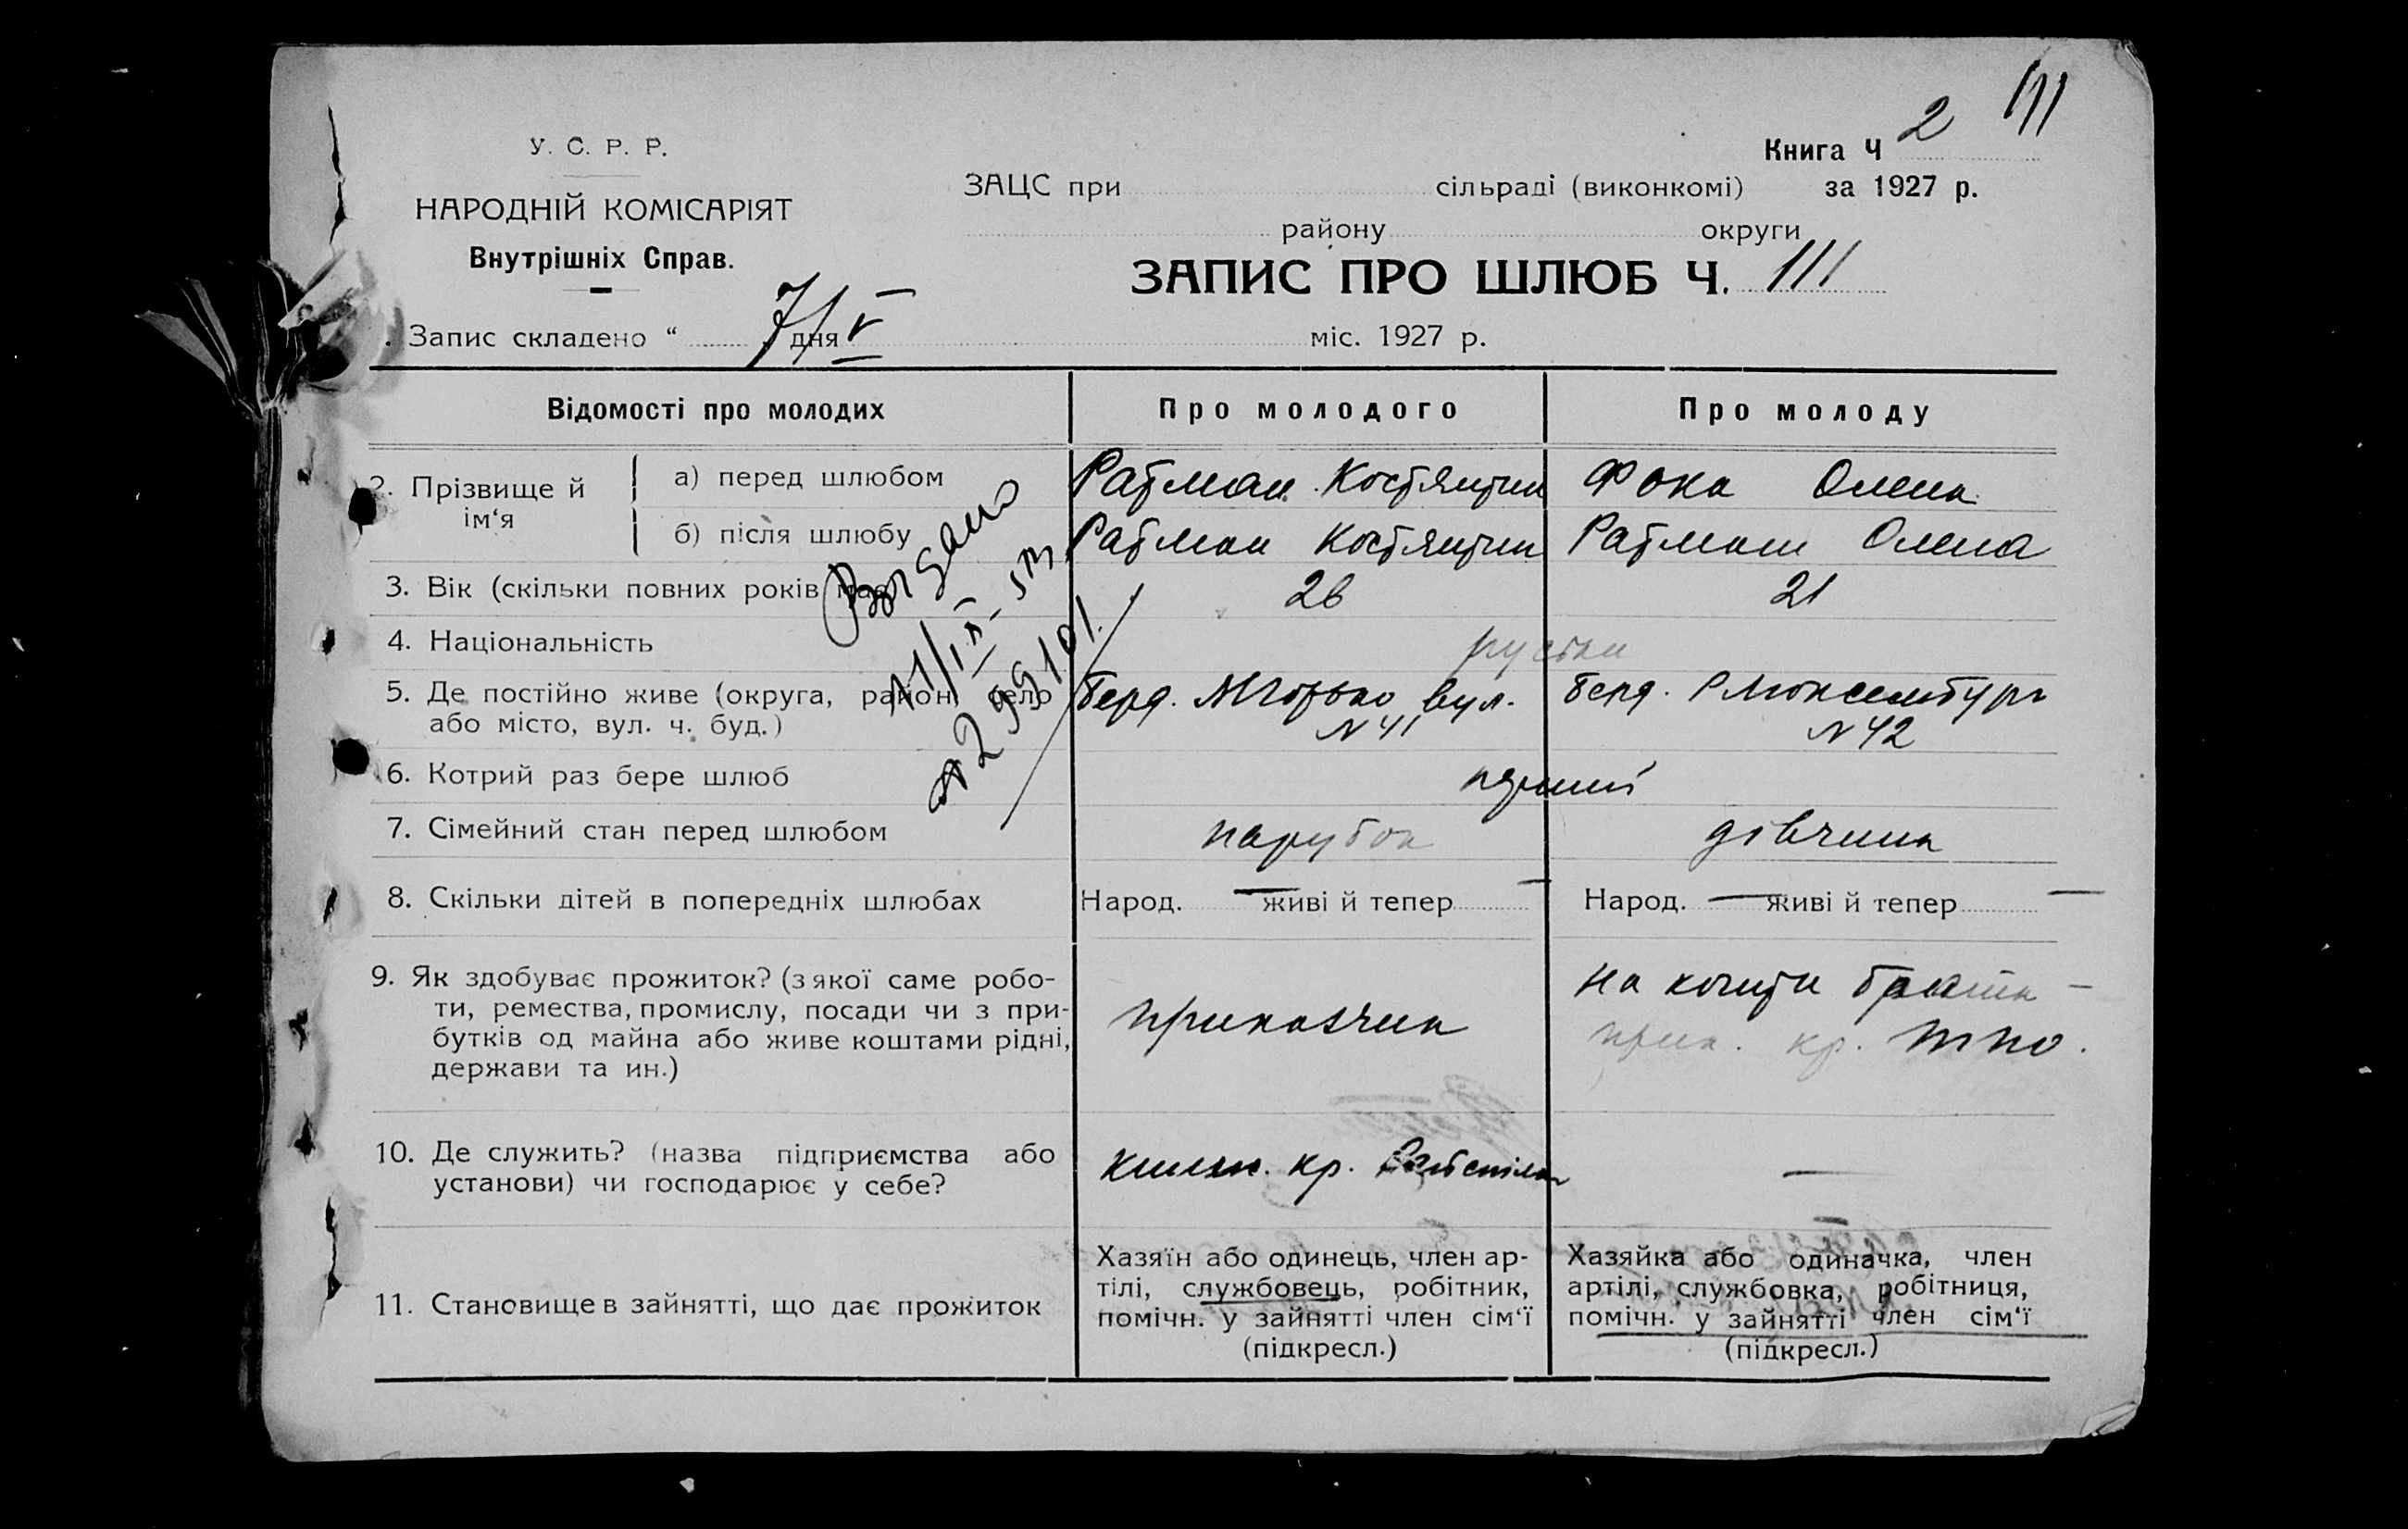 111
У. С. Р. Р.
Книга Ч 2
НАРОДНІЙ КОМІСАРІЯТ
ЗАЦС при сільраді (виконкомі) за 1927 р.
району округи
Внутрішніх Справ.
ЗАПИС ПРО ШЛЮБ Ч. 111
Запис складено “ 7/V дня міс. 1927 р.
Відомості про молодих Про молодого Про молоду
2. Прізвище й ім‘я а) перед шлюбом Ратман Костянтин Фока Олена
б) після шлюбу Ратман Костянтин Ратман Олена
3. Вік (скільки повних років має) 26 21
4. Національність руськи
5. Де постійно живе (округа, район, село Берд. М Горько вул. Берд. Р Люксембург
або місто, вул. ч. буд.) N 41 N 42
Видано
11/IX-
N 299101
6. Котрий раз бере шлюб перший
7. Сімейний стан перед шлюбом парубок дівчина
8. Скільки дітей в попередніх шлюбах Народ. — живі й тепер — Народ. — живі й тепер —
9. Як здобуває прожиток? (з якої саме робо-
ти, ремества, промислу, посади чи з при-
бутків од майна або живе коштами рідні,
держави та ин.)
приказчик
на кошти брата -
прик. кр.
10. Де служить? (назва підприємства або
установи) чи господарює у себе?
кр. —
11. Становище в зайнятті, що дає прожиток
Хазяїн або одинець, член ар-
тілі, службовець, робітник,
помічн. у зайнятті член сім‘ї
(підкресл.)
Хазяйка або одиначка, член
артілі, службовка, робітниця,
помічн. у зайнятті член сім‘ї
(підкресл.)